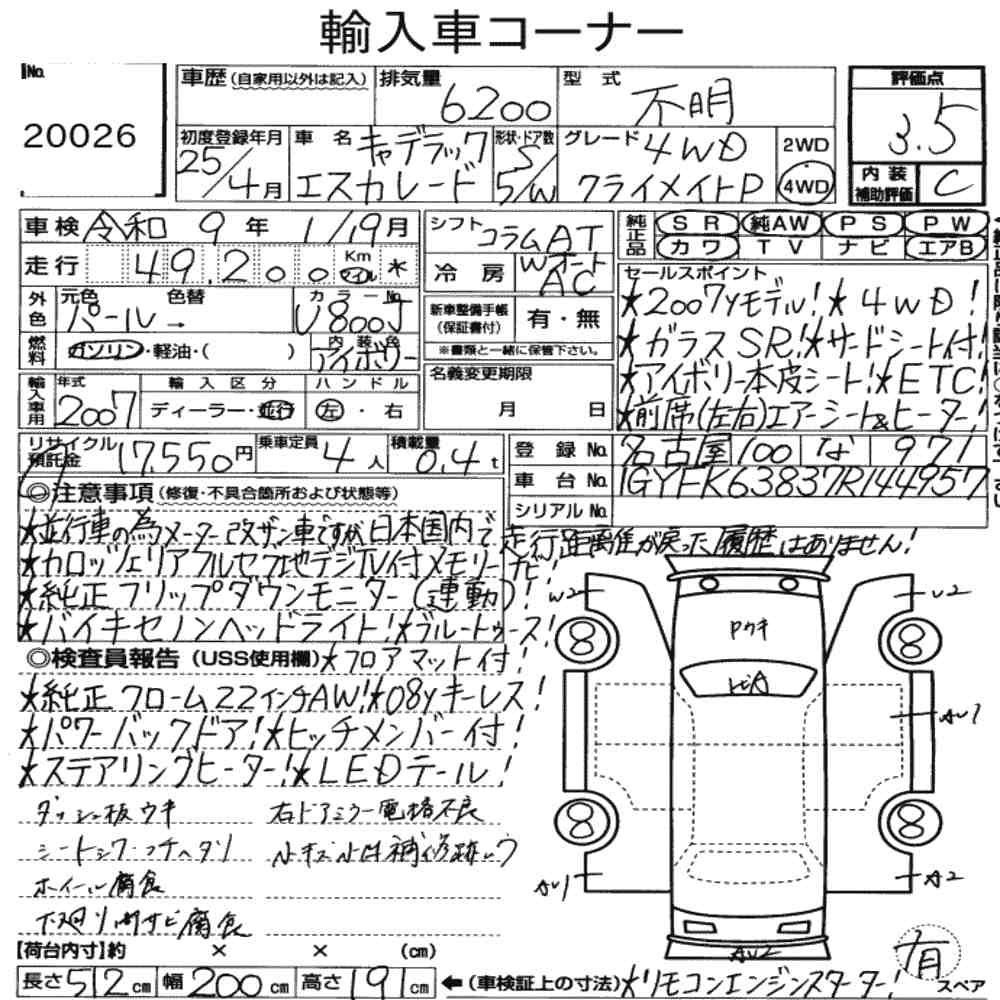 輸入車コーナー
No. 20026
車歴(自家用以外は記入) 排気量 6200 型式 不明
初度登録年月 25/4月 車名 キャデラック エスカレード 形状・ドア数 S/5/W グレード 4WD クライメイトP 2WD 4WD
評価点 3.5
内装補助評価 C
車検 令和 9年 1/19月
走行 49,200 Km マイル *
シフト コラムAT
冷房 WオートAC
純正品 SR 純AW PS PW
カワ TV ナビ エアB
外色 元色 パール→ 色替 カラーNo. U800J
燃料 ガソリン・軽油・( ) 内装色 アイボリー
新車整備手帳(保証書付) 有・無
※書類と一緒に保管下さい。
セールスポイント
★2007yモデル!★4WD!
★ガラスSR!★サードシート付!
★アイボリー本皮シート!★ETC!
★前席(左右)エアーシート&ヒーター!
輸入車用 年式 2007 輸入区分 ディーラー・並行 ハンドル 左・右
名義変更期限 月 日
リサイクル預託金 17,550円 乗車定員 4人 積載量 0.4t
登録No. 名古屋 100 な 971
車台No. 1GYFK63837R144957
シリアルNo.
◎注意事項(修復・不具合箇所および状態等)
★並行車の為メーター改ザン車ですが日本国内で走行距離が戻った履歴はありません!
★カロッツェリアフルセグ地デジTV付メモリーナビ!
★純正フリップダウンモニター(連動)!
★バイキセノンヘッドライト!★ブルートゥース!
◎検査員報告(USS使用欄)★フロアマット付!
★純正クローム22インチAW!★08yキーレス!
★パワーバックドア!★ヒッチメンバー付!
★ステアリングヒーター!★LEDテール!
ダッシュ板ウキ 右ドアミラー電格不良
シートシワ・コゲ・ヘタリ 小キズ小凹補修跡有り
ホイール腐食
下廻り錆サビ腐食
W2 U2
Pウキ
AU1
AU1 A2
AU2
有
スペア
【荷台内寸】約 × × (cm)
長さ512cm 幅200cm 高さ191cm ←(車検証上の寸法)★リモコンエンジンスターター!